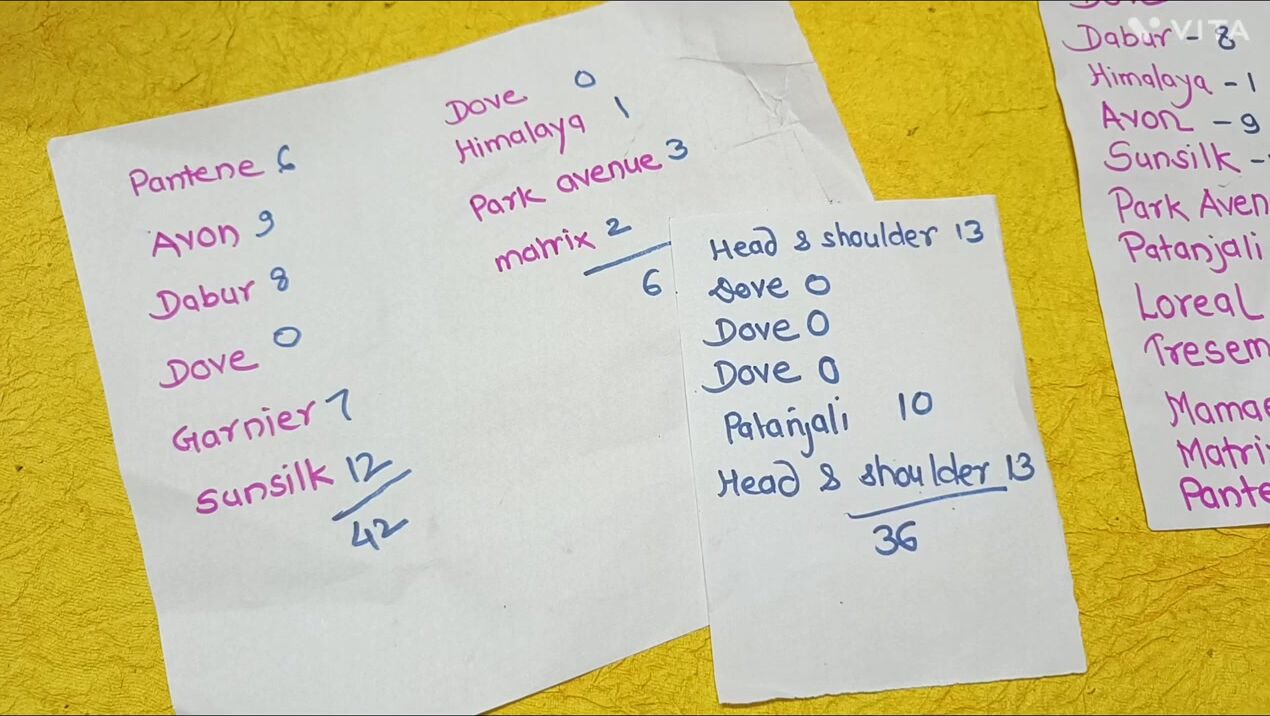 Pantene 6
Avon 9
Dabur 8
Dove 0
Garnier 7
Sunsilk 12
42
Dove 0
Himalaya 1
Park avenue 3
matrix 2
6
Head & shoulder 13
Dove 0
Dove 0
Dove 0
Patanjali 10
Head & shoulder 13
36
VITA
Dabur - 8
Himalaya - 1
Avon - 9
Sunsilk -
Park Aven
Patanjali
Loreal
Tresem
Mamae
Matri
Pante